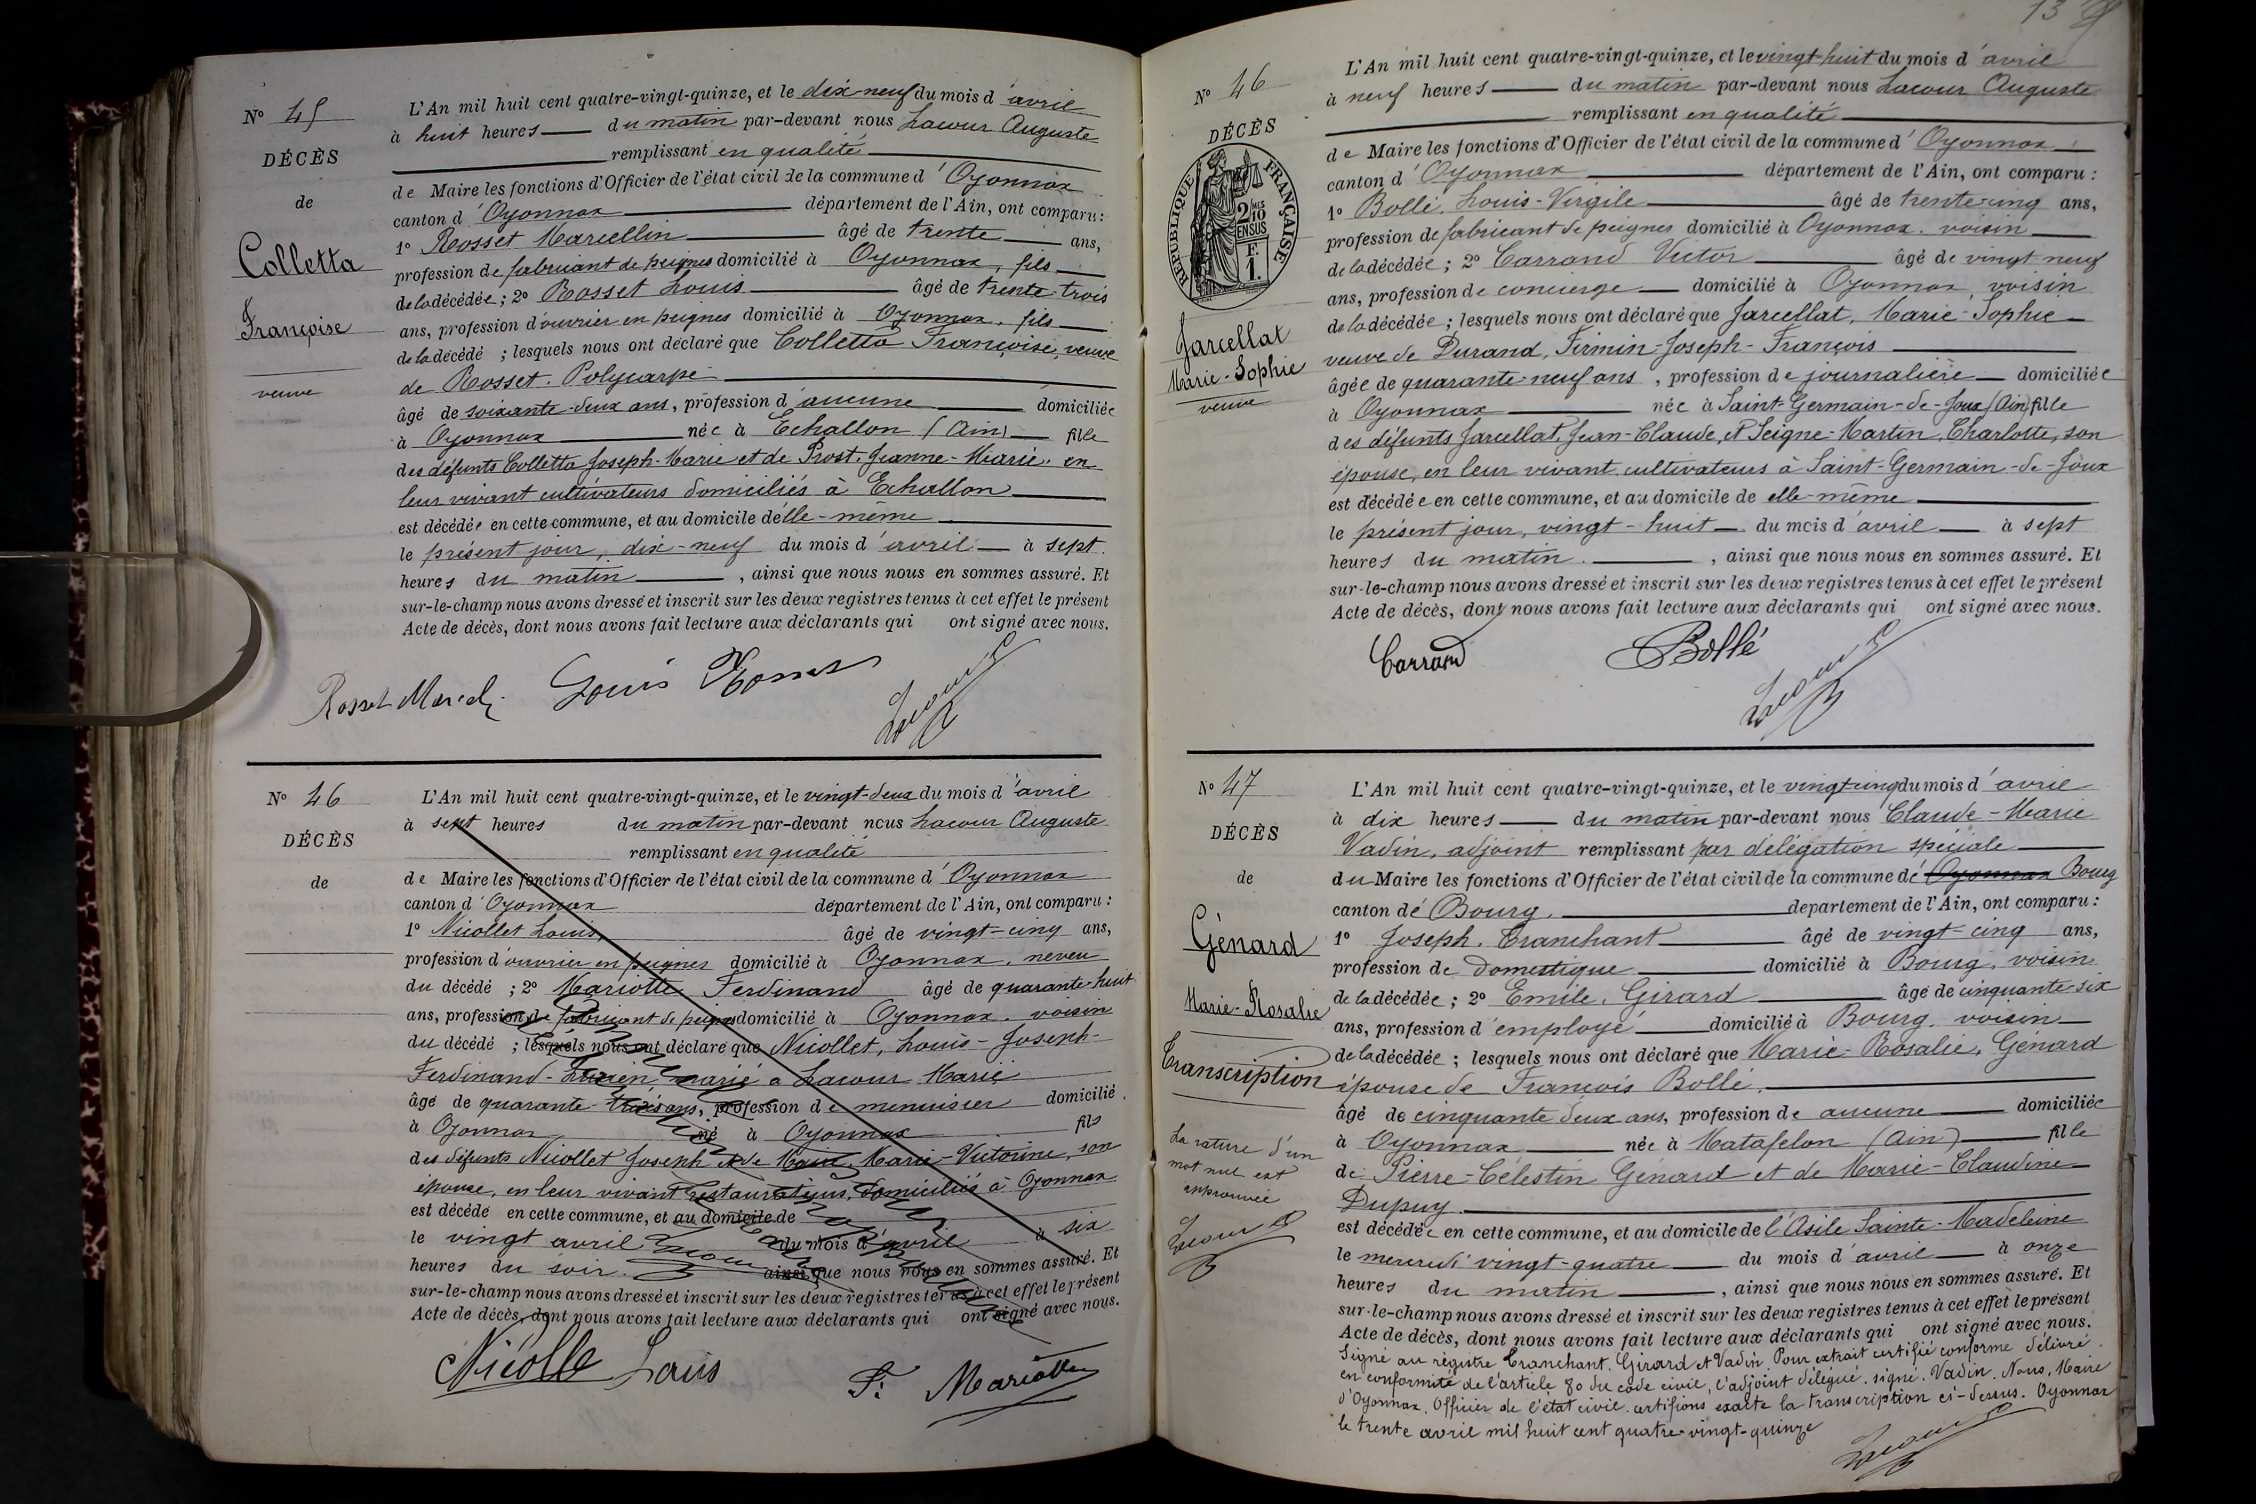 N° 45
DÉCÈS
de
Colletta
Françoise
veuve
L'An mil huit cent quatre-vingt-quinze, et le dix-neuf du mois d'avril
à huit heures du matin par-devant nous Lacour Auguste
remplissant en qualité
de Maire les fonctions d'Officier de l'état civil de la commune d'Oyonnax
canton d'Oyonnax département de l'Ain, ont comparu :
1° Rosset Marcellin âgé de trente ans,
profession de fabricant de peignes domicilié à Oyonnax, fils
de la décédée ; 2° Rosset Louis âgé de trente-trois
ans, profession d'ouvrier en peignes domicilié à Oyonnax, fils
de la décédé ; lesquels nous ont déclaré que Colletta Françoise, veuve
de Rosset Polycarpe
âgé de soixante-deux ans, profession d'aucune domiciliée
à Oyonnax née à Echallon (Ain) fille
des défunts Colletta Joseph-Marie et de Prost, Jeanne-Marie, en
leur vivant cultivateurs domiciliés à Echallon
est décédée en cette commune, et au domicile d'elle-même
le présent jour, dix-neuf du mois d'avril à sept
heures du matin, ainsi que nous nous en sommes assuré. Et
sur-le-champ nous avons dressé et inscrit sur les deux registres tenus à cet effet le présent
Acte de décès, dont nous avons fait lecture aux déclarants qui ont signé avec nous.
Louis Rosset
N° 46
DÉCÈS
de
L'An mil huit cent quatre-vingt-quinze, et le vingt-deux du mois d'avril
à sept heures du matin par-devant nous Lacour Auguste
remplissant en qualité
de Maire les fonctions d'Officier de l'état civil de la commune d'Oyonnax
canton d'Oyonnax département de l'Ain, ont comparu :
1° Nicollet Louis, âgé de vingt-cinq ans,
profession d'ouvrier en peignes domicilié à Oyonnax, neveu
du décédé ; 2° Mariotte Ferdinand âgé de quarante-huit
ans, profession de fabricant de peignes domicilié à Oyonnax, voisin
du décédé ; lesquels nous ont déclaré que Nicollet, Louis-Joseph-
Ferdinand-Lucien, marié à Lacour Marie
âgé de quarante-trois ans, profession de menuisier domicilié
à Oyonnax né à Oyonnax fils
des défunts Nicollet Joseph et de Marie-Victorine, son
épouse, en leur vivant restaurateurs, domiciliés à Oyonnax
est décédé en cette commune, et au domicile de
le vingt avril du mois d'avril à six
heures du soir. ainsi que nous nous en sommes assuré. Et
sur-le-champ nous avons dressé et inscrit sur les deux registres tenus à cet effet le présent
Acte de décès, dont nous avons fait lecture aux déclarants qui ont signé avec nous.
Nicolle Louis F. Mariotte
13
N° 46
DÉCÈS
RÉPUBLIQUE FRANÇAISE
2/10 MES
EN SUS
F.
1.
Jarcellat
Marie-Sophie
veuve
L'An mil huit cent quatre-vingt-quinze, et le vingt-huit du mois d'avril
à neuf heures du matin par-devant nous Lacour Auguste
remplissant en qualité
de Maire les fonctions d'Officier de l'état civil de la commune d'Oyonnax
canton d'Oyonnax département de l'Ain, ont comparu :
1° Bollé, Louis-Virgile âgé de trente-cinq ans,
profession de fabricant de peignes domicilié à Oyonnax, voisin
de la décédée ; 2° Carrand Victor âgé de vingt-neuf
ans, profession de concierge domicilié à Oyonnax, voisin
de la décédée ; lesquels nous ont déclaré que Jarcellat, Marie-Sophie
veuve de Durand, Firmin-Joseph-François
âgée de quarante-neuf ans, profession de journalière domiciliée
à Oyonnax née à Saint-Germain-de-Joux (Ain) fille
des défunts Jarcellat, Jean-Claude, et Seigne-Martin, Charlotte, son
épouse, en leur vivant cultivateurs à Saint-Germain-de-Joux
est décédée en cette commune, et au domicile de elle-même
le présent jour, vingt-huit du mois d'avril à sept
heures du matin, ainsi que nous nous en sommes assuré. Et
sur-le-champ nous avons dressé et inscrit sur les deux registres tenus à cet effet le présent
Acte de décès, dont nous avons fait lecture aux déclarants qui ont signé avec nous.
Carrand Bollé
N° 47
DÉCÈS
de
Génard
Marie-Rosalie
Transcription
La rature d'un
mot nul est
approuvée
L'An mil huit cent quatre-vingt-quinze, et le vingt-cinq du mois d'avril
à dix heures du matin par-devant nous Claude-Marie
Vadin, adjoint remplissant par délégation spéciale
du Maire les fonctions d'Officier de l'état civil de la commune de Oyonnax Bourg
canton de Bourg, département de l'Ain, ont comparu :
1° Joseph Tranchant âgé de vingt-cinq ans,
profession de domestique domicilié à Bourg, voisin
de la décédée ; 2° Emile Girard âgé de cinquante-six
ans, profession d'employé domicilié à Bourg, voisin
de la décédée ; lesquels nous ont déclaré que Marie-Rosalie, Génard
épouse de François Bollé,
âgé de cinquante deux ans, profession de aucune domiciliée
à Oyonnax née à Matafelon (Ain) fille
de Pierre-Célestin Génard et de Marie-Claudine
Dupuy.
est décédée en cette commune, et au domicile de l'Asile Sainte-Madeleine
le mercredi vingt-quatre du mois d'avril à onze
heures du matin, ainsi que nous nous en sommes assuré. Et
sur-le-champ nous avons dressé et inscrit sur les deux registres tenus à cet effet le présent
Acte de décès, dont nous avons fait lecture aux déclarants qui ont signé avec nous.
Signé au registre Tranchant, Girard et Vadin. Pour extrait certifié conforme délivré
en conformité de l'article 80 du code civil, l'adjoint délégué, signé, Vadin. Nous, Maire
d'Oyonnax, Officier de l'état civil certifions exacte la transcription ci-dessus. Oyonnax
le trente avril mil huit cent quatre-vingt-quinze